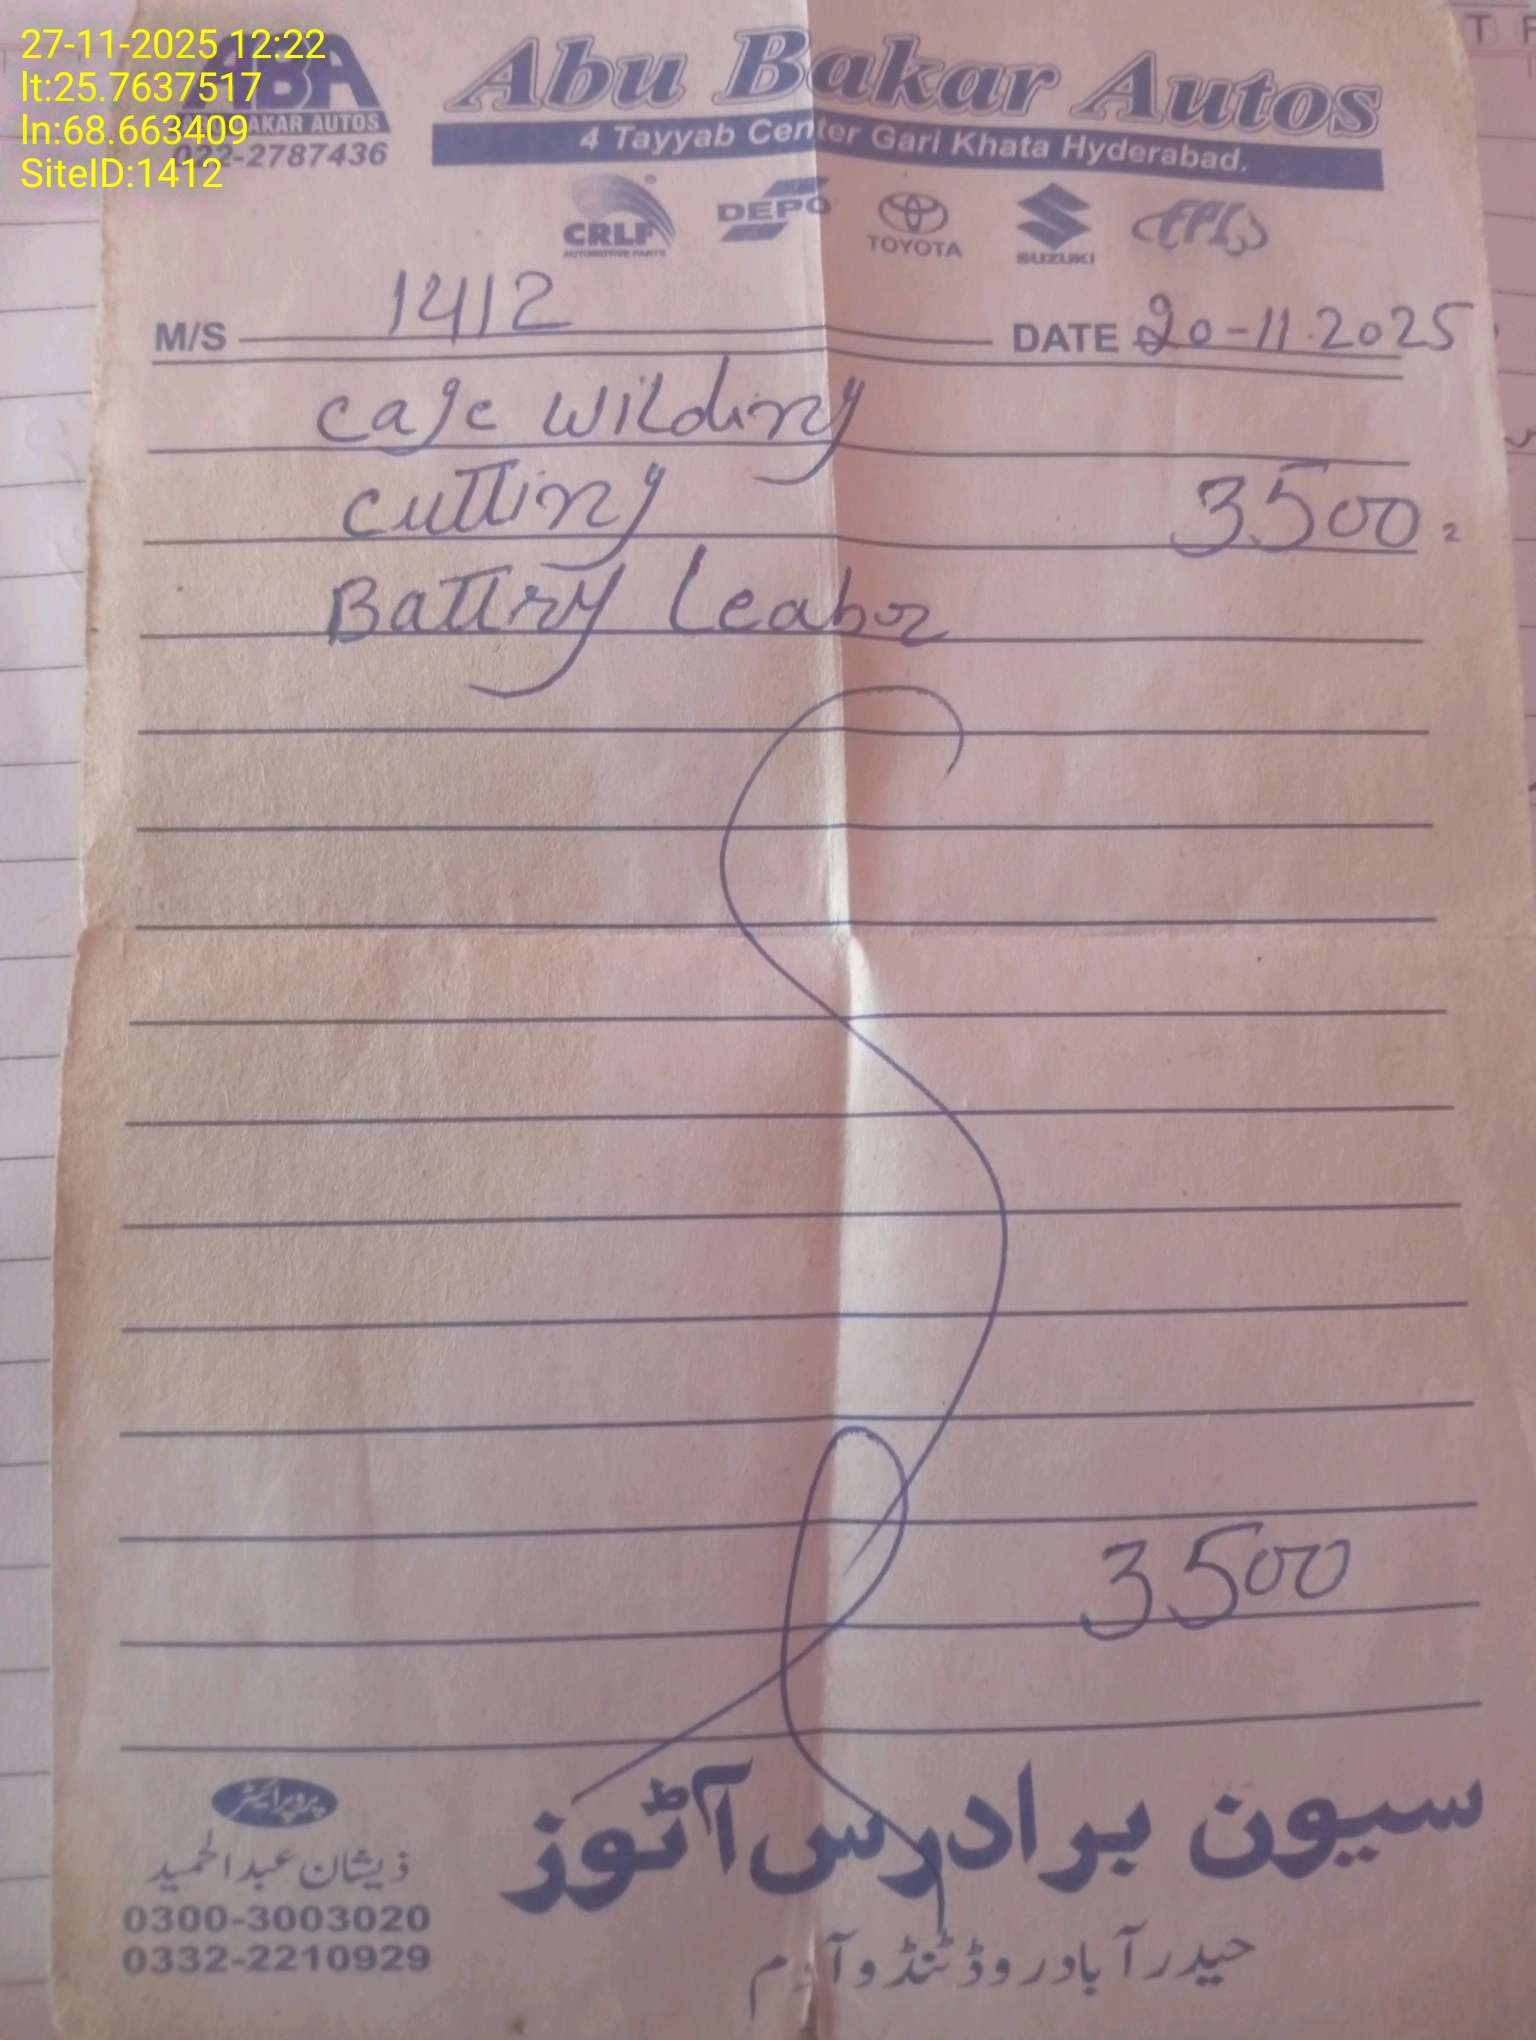 27-11-2025 12:22
lt:25.7637517
ln:68.663409
SiteID:1412
ABA
BAKAR AUTOS
022-2787436
Abu Bakar Autos
4 Tayyab Center Gari Khata Hyderabad.
CRLF
AUTOMOTIVE PARTS
DEPO
TOYOTA
SUZUKI
EPI
M/S 1412 DATE 20-11.2025
cage wilding
cutting 3500
Battry leabor
3500
سیون برادرس آٹوز
حیدرآباد روڈ ٹنڈو آدم
پروپرائیٹر
ذیشان عبدالحمید
0300-3003020
0332-2210929